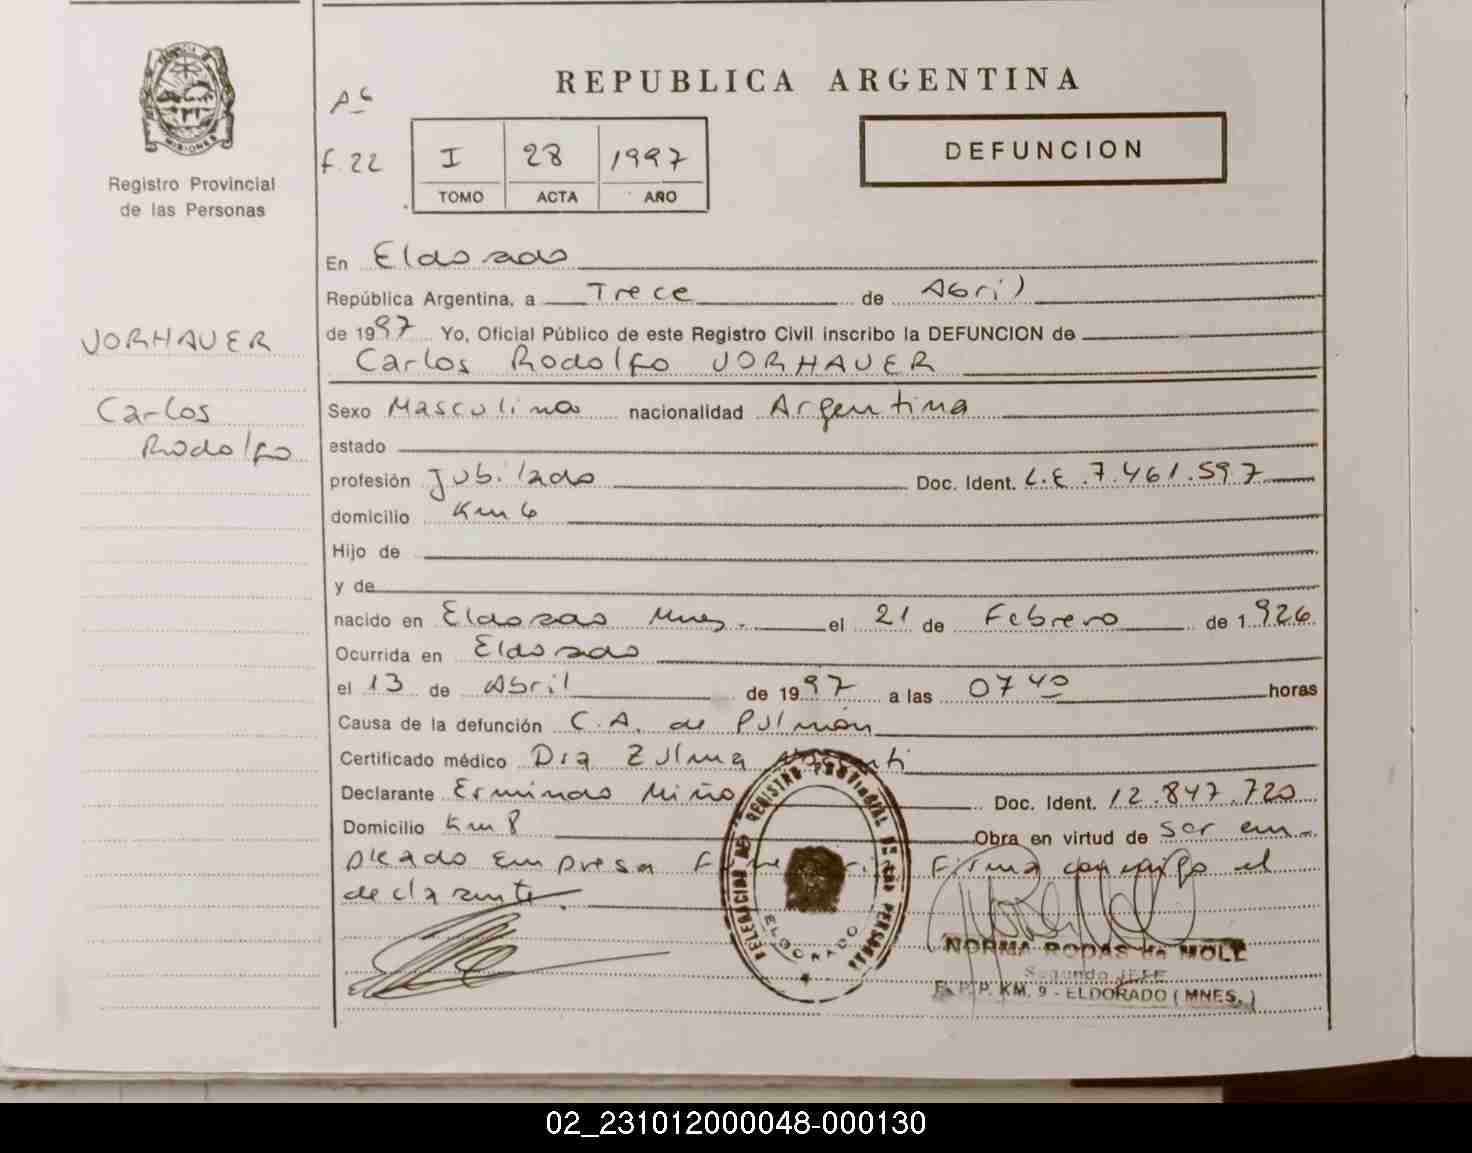 MISIONES
Registro Provincial
de las Personas
JORHAUER
Carlos
Rodolfo
REPUBLICA ARGENTINA
F. 22
I 28 1997
TOMO ACTA AÑO
DEFUNCION
En Eldorado
República Argentina, a Trece de Abril
de 1997 Yo, Oficial Público de este Registro Civil inscribo la DEFUNCION de
Carlos Rodolfo JORHAUER
Sexo Masculino nacionalidad Argentina
estado
profesión Jubilado Doc. Ident. L.E. 7.461.597
domicilio Km 6
Hijo de
y de
nacido en Eldorado Mnes. el 21 de Febrero de 1926
Ocurrida en Eldorado
el 13 de Abril de 1997 a las 0740 horas
Causa de la defunción C.A. de Pulmón
Certificado médico Dra Zulma
Declarante Ermindo Miño Doc. Ident. 12.847.720
Domicilio Km 8 Obra en virtud de ser em-
pleado Empresa Firma conmigo el
declarante.
DELEGACION DEL REGISTRO PROVINCIAL DE LAS PERSONAS
ELDORADO
NORMA RODAS de MOLL
Segundo JEFE
R. P. P. KM. 9 - ELDORADO ( MNES. )
02_231012000048-000130